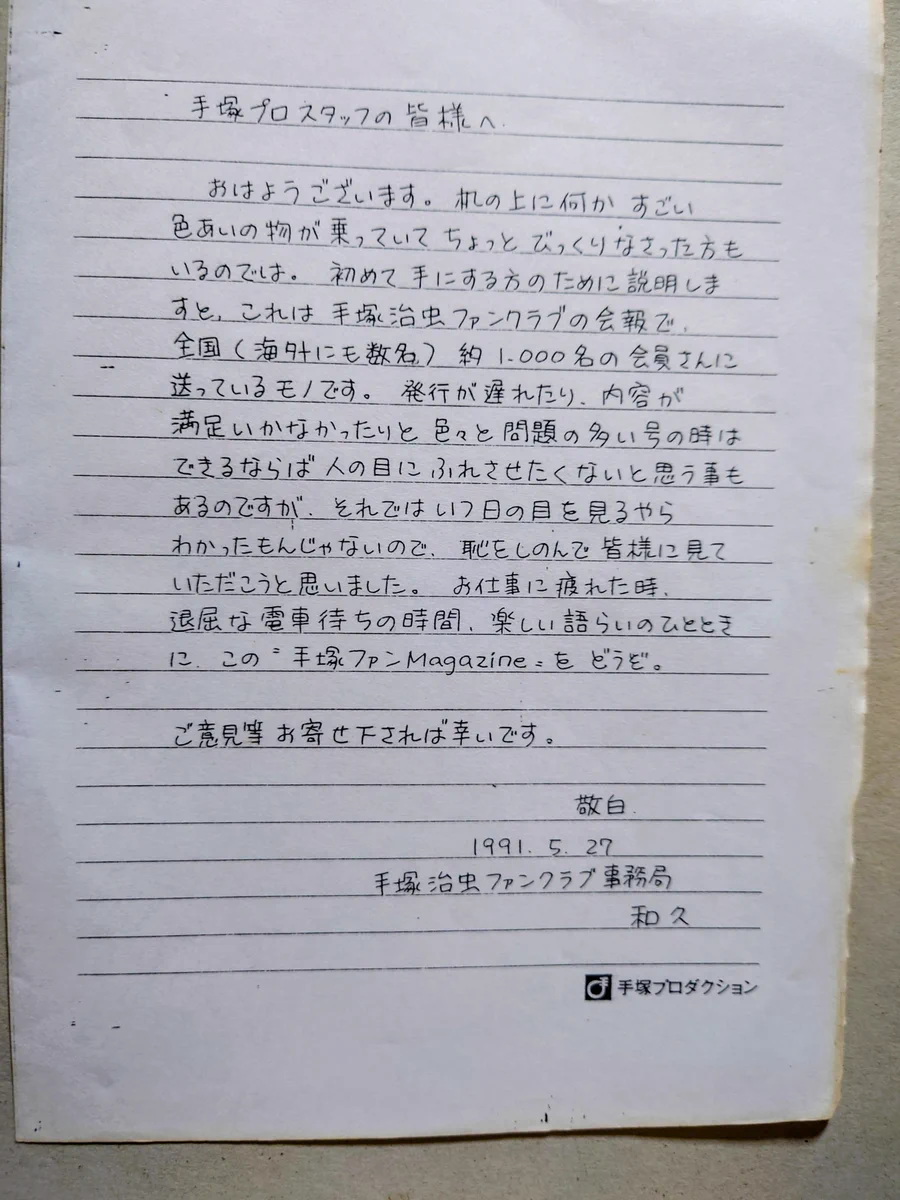 手塚プロスタッフの皆様へ.
おはようございます。机の上に何か すごい
色あいの物が乗っていて ちょっと びっくりなさった方も
いるのでは。 初めて手にする方のために説明しま
すと、これは 手塚治虫ファンクラブの会報で、
全国(海外にも数名) 約1.000名の会員さんに
送っているモノです。 発行が遅れたり、内容が
満足いかなかったりと 色々と問題の多い号の時は
できるならば人の目に ふれさせたくないと思う事も
あるのですが、それではいつ日の目を見るやら
わかったもんじゃないので、恥をしのんで皆様に見て
いただこうと思いました。 お仕事に疲れた時、
退屈な電車待ちの時間、楽しい語らいのひととき
に、この〝手塚ファンMagazine〟を どうぞ。
ご意見等お寄せ下されば幸いです。
敬白.
1991. 5. 27
手塚治虫ファンクラブ事務局
和久
手塚プロダクション